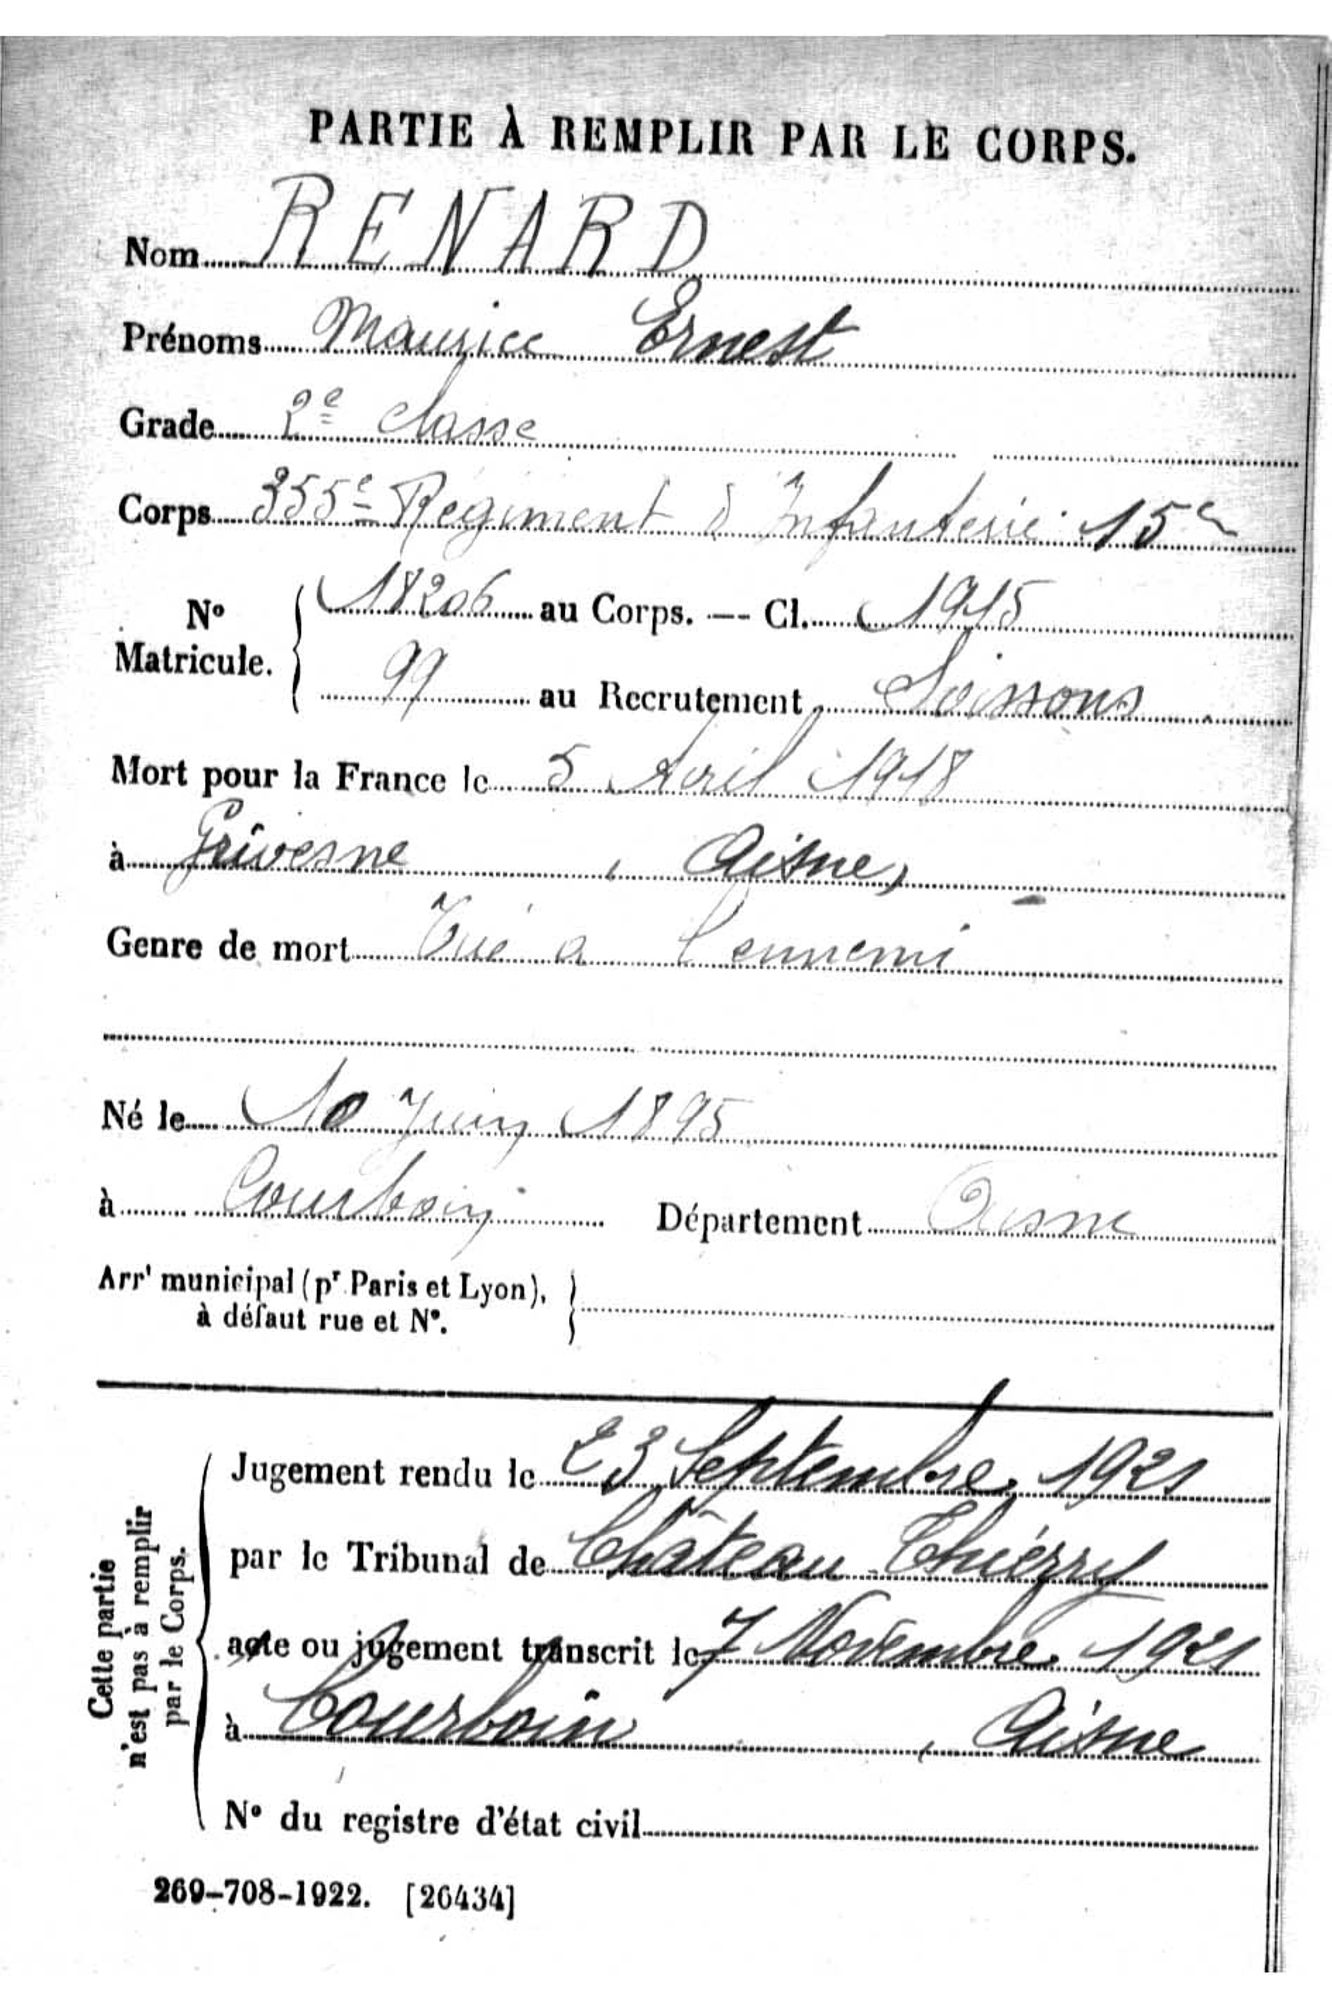 PARTIE À REMPLIR PAR LE CORPS.
Nom RENARD
Prénoms Maurice Ernest
Grade 2e classe
Corps 355e Régiment d'Infanterie 15e
No Matricule. 18206 au Corps. — Cl. 1915
99 au Recrutement Soissons
Mort pour la France le 5 Avril 1918
à Grivesne, Aisne,
Genre de mort Tué a l'ennemi
Né le 10 Juin 1895
à Courboin Département Aisne
Arrt municipal (pr Paris et Lyon),
à défaut rue et No.
Cette partie n'est pas à remplir par le Corps.
Jugement rendu le 23 Septembre 1921
par le Tribunal de Château-Thiérry
acte ou jugement transcrit le 7 Novembre 1921
à Courboin, Aisne
No du registre d'état civil
269-708-1922. [26434]